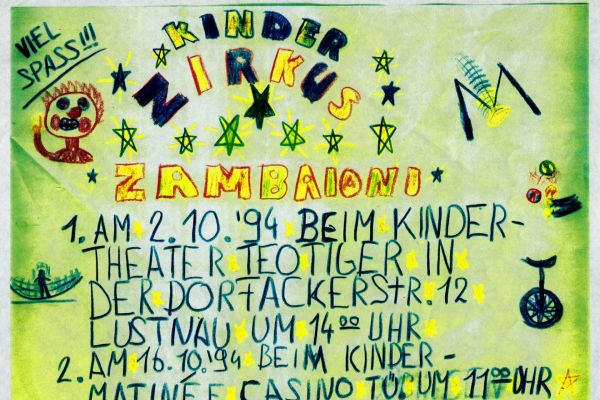 VIEL
SPASS!!!
KINDER
ZIRKUS
ZAMBAIONI
1. AM 2.10.'94 BEIM KINDER-
THEATER TEOTIGER IN
DER DORFACKERSTR. 12
LUSTNAU UM 14 00 UHR
2. AM 16.10.'94 BEIM KINDER-
MATINÉE CASINO TÜ UM 11 00 UHR